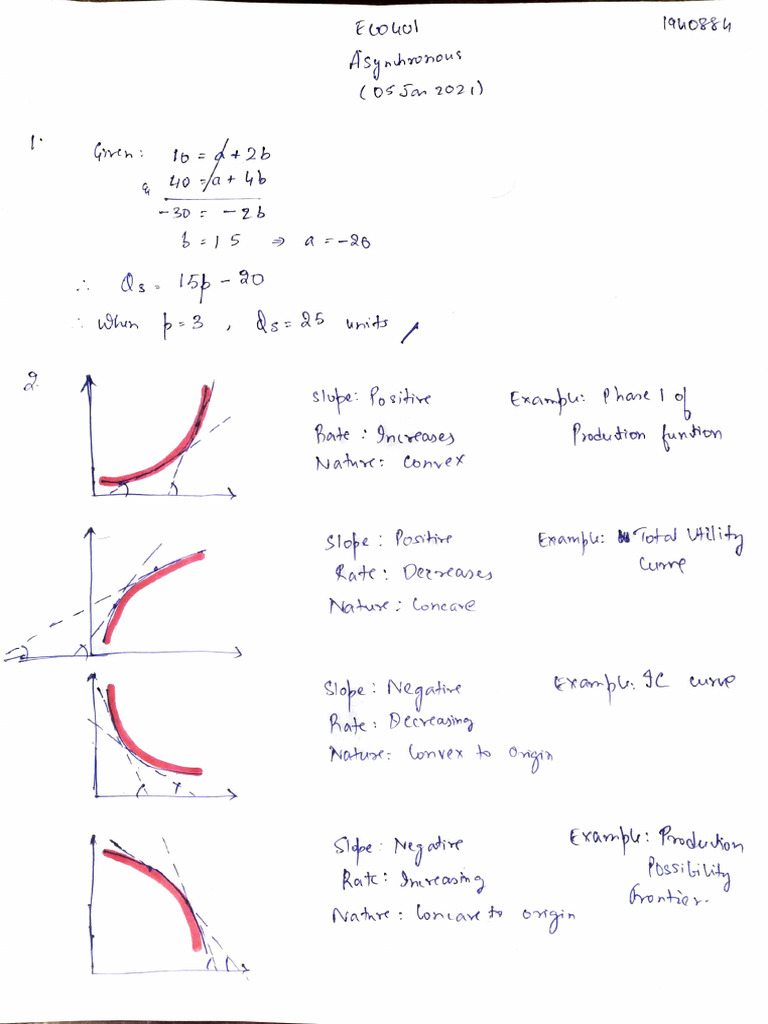 ECO401
1940884
Asynchronous
(05 Jan 2021)
1.
Given: 10 = a + 2b
& 40 = a + 4b
-30 = -2b
b = 15 ⇒ a = -20
∴ Qs = 15p - 20
∴ When p = 3, Qs = 25 units
2.
Slope: Positive
Example: Phase 1 of
Rate: Increases
Production function
Nature: Convex
Slope: Positive
Example: Total Utility
Rate: Decreases
Curve
Nature: Concave
Slope: Negative
Example: IC curve
Rate: Decreasing
Nature: Convex to Origin
Slope: Negative
Example: Production
Rate: Increasing
Possibility
Nature: Concave to origin
Frontier.